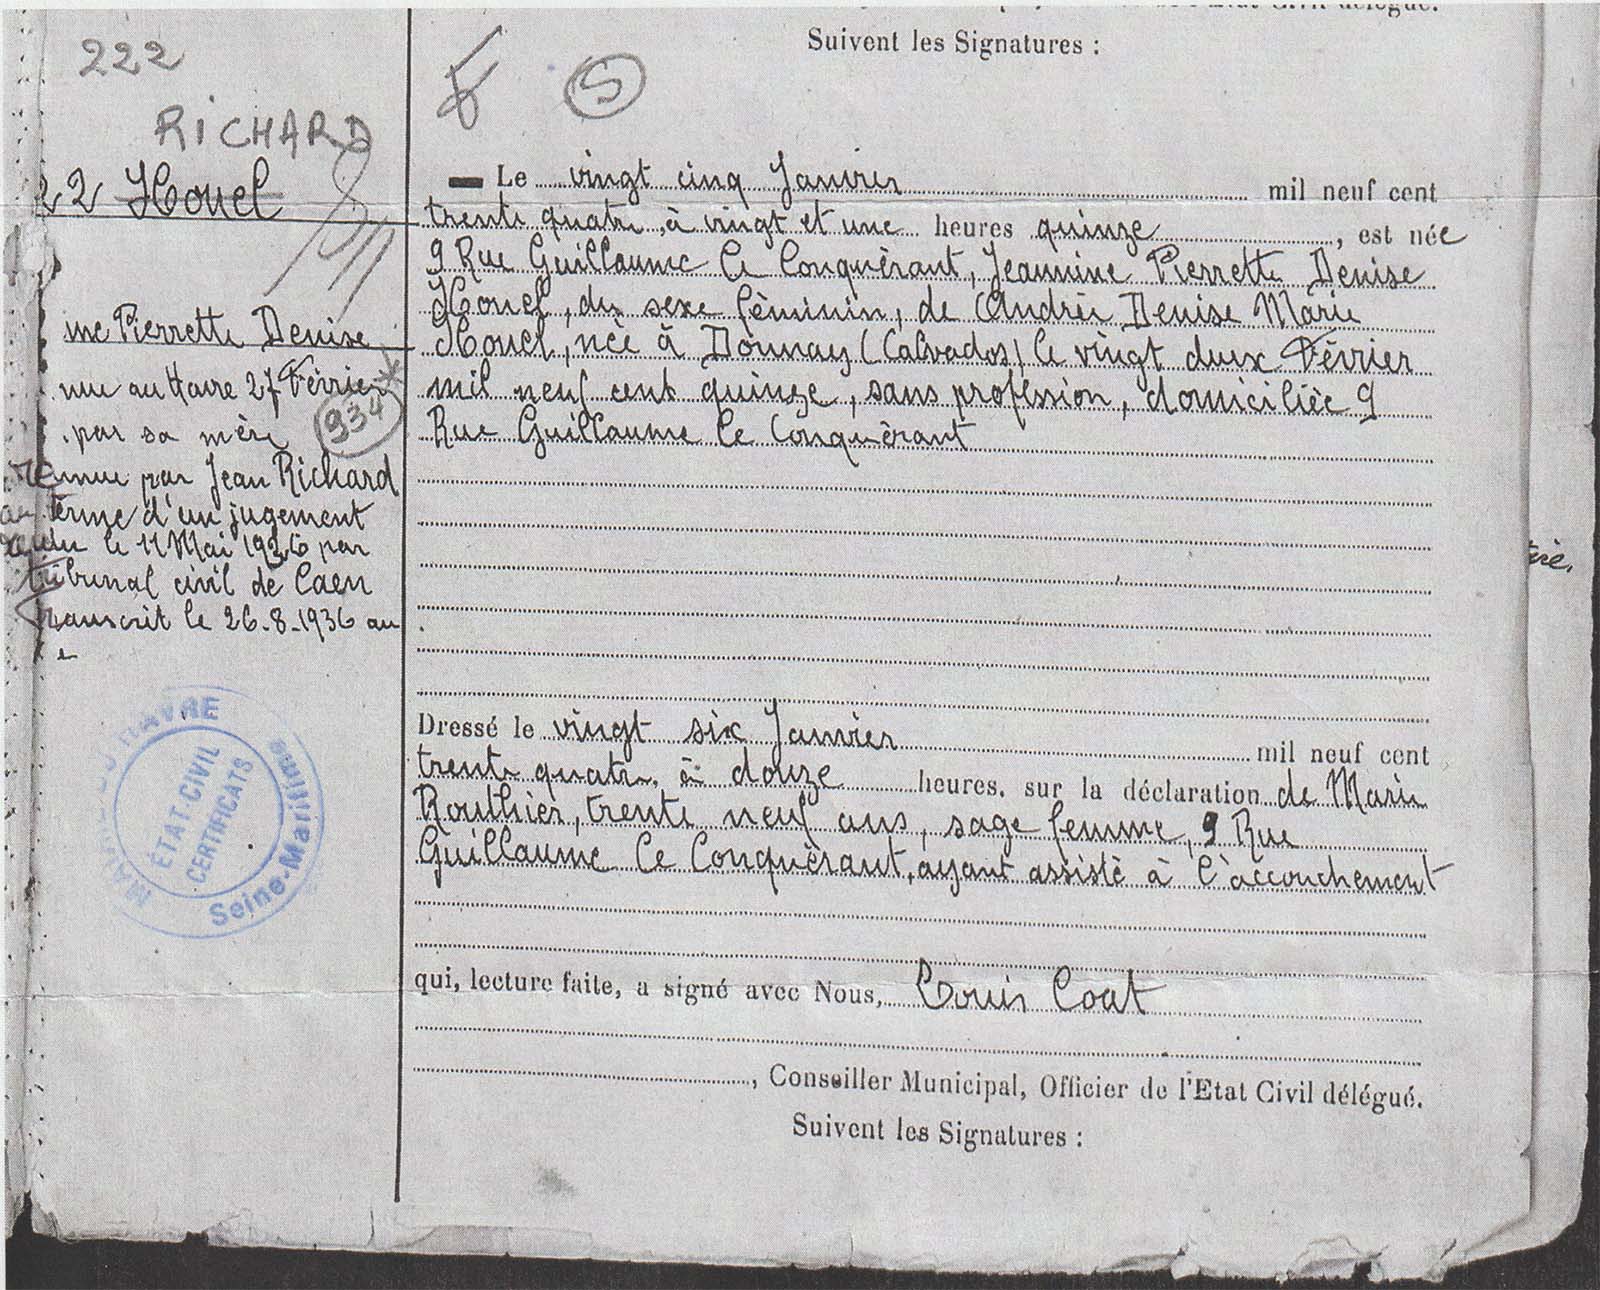 Suivent les Signatures :
222
S
RICHARD
22 Houel
me Pierrette Denise
nue au Havre 27 Février
934
par sa mère
nnue par Jean Richard
terme d'un jugement
le 11 Mai 1936 par
tribunal civil de Caen
transcrit le 26-8-1936 au
MAIRIE DU HAVRE
ÉTAT-CIVIL
CERTIFICATS
Seine-Maritime
Le vingt cinq Janvier mil neuf cent
trente quatre, à vingt et une heures quinze, est née
9 Rue Guillaume le Conquèrant, Jeannine Pierrette Denise
Houel, du sexe féminin, de Andrée Denise Marie
Houel, née à Donnay (Calvados) le vingt deux Février
mil neuf cent quinze, sans profession, domiciliée 9
Rue Guillaume le Conquèrant
Dressé le vingt six Janvier mil neuf cent
trente quatre, à douze heures, sur la déclaration de Marie
Routhier, trente neuf ans, sage femme, 9 Rue
Guillaume le Conquèrant, ayant assisté à l'accouchement
qui, lecture faite, a signé avec Nous, Louis Coat
, Conseiller Municipal, Officier de l'Etat Civil délégué.
Suivent les Signatures :